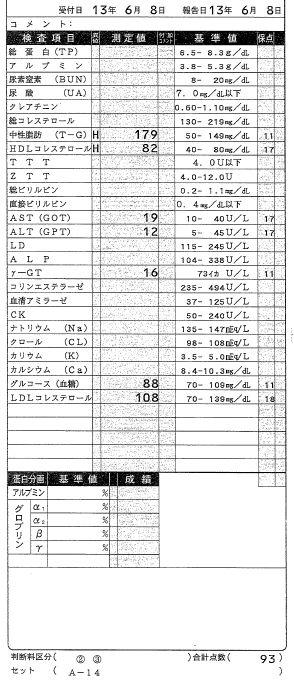 受付日 13年 6月 8日 報告日13年 6月 8日
コメント:
検査項目 測定値 基準値 保点
総蛋白(TP) 6.5- 8.3g/dL
アルブミン 3.8- 5.3g/dL
尿素窒素 (BUN) 8- 20mg/dL
尿酸 (UA) 7.0mg/dL以下
クレアチニン 0.60-1.10mg/dL
総コレステロール 130-219mg/dL
中性脂肪 (T-G) H 179 50-149mg/dL 11
HDLコレステロール H 82 40- 80mg/dL 17
TTT 4.0U以下
ZTT 4.0-12.0U
総ビリルビン 0.2- 1.1mg/dL
直接ビリルビン 0.4mg/dL以下
AST(GOT) 19 10- 40U/L 17
ALT(GPT) 12 5- 45U/L 17
LD 115-245U/L
ALP 104-338U/L
γ-GT 16 73イカ U/L 11
コリンエステラーゼ 235-494U/L
血清アミラーゼ 37-125U/L
CK 50-240U/L
ナトリウム (Na) 135-147mEq/L
クロール (CL) 98-108mEq/L
カリウム (K) 3.5- 5.0mEq/L
カルシウム (Ca) 8.4-10.3mg/dL
グルコース(血糖) 88 70-109mg/dL 11
LDLコレステロール 108 70-139mg/dL 18
蛋白分画 基準値 成績
アルブミン %
グロブリン α1 %
α2 %
β %
γ %
判断料区分( ② ③ )合計点数( 93)
セット ( A-14